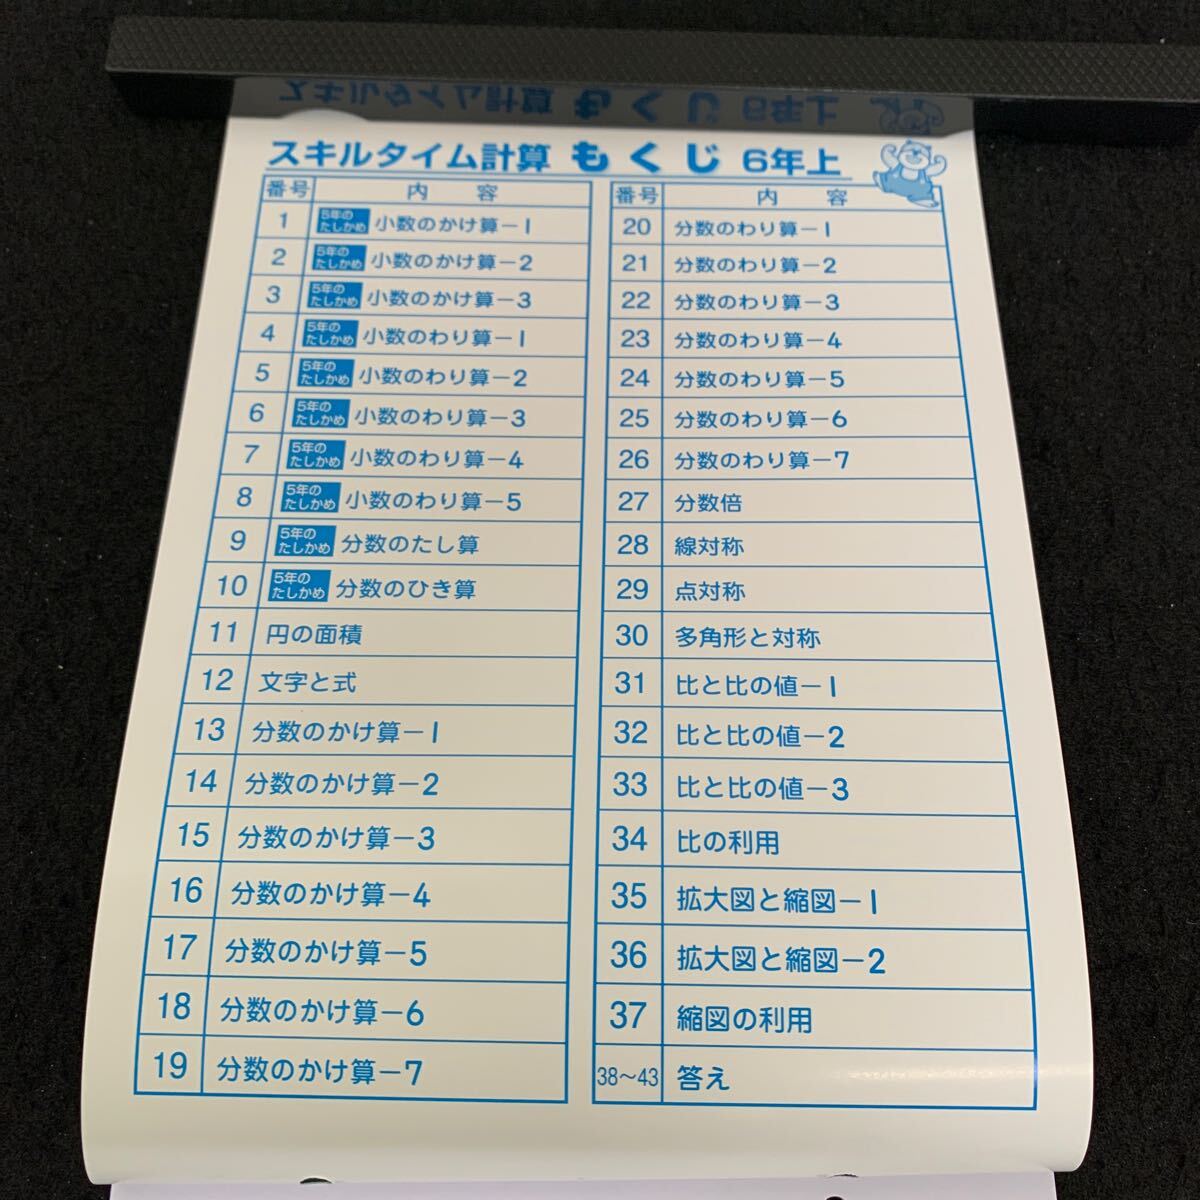 スキルタイム計算 もくじ 6年上
番号 内容
1 5年のたしかめ 小数のかけ算－1
2 5年のたしかめ 小数のかけ算－2
3 5年のたしかめ 小数のかけ算－3
4 5年のたしかめ 小数のわり算－1
5 5年のたしかめ 小数のわり算－2
6 5年のたしかめ 小数のわり算－3
7 5年のたしかめ 小数のわり算－4
8 5年のたしかめ 小数のわり算－5
9 5年のたしかめ 分数のたし算
10 5年のたしかめ 分数のひき算
11 円の面積
12 文字と式
13 分数のかけ算－1
14 分数のかけ算－2
15 分数のかけ算－3
16 分数のかけ算－4
17 分数のかけ算－5
18 分数のかけ算－6
19 分数のかけ算－7
番号 内容
20 分数のわり算－1
21 分数のわり算－2
22 分数のわり算－3
23 分数のわり算－4
24 分数のわり算－5
25 分数のわり算－6
26 分数のわり算－7
27 分数倍
28 線対称
29 点対称
30 多角形と対称
31 比と比の値－1
32 比と比の値－2
33 比と比の値－3
34 比の利用
35 拡大図と縮図－1
36 拡大図と縮図－2
37 縮図の利用
38～43 答え